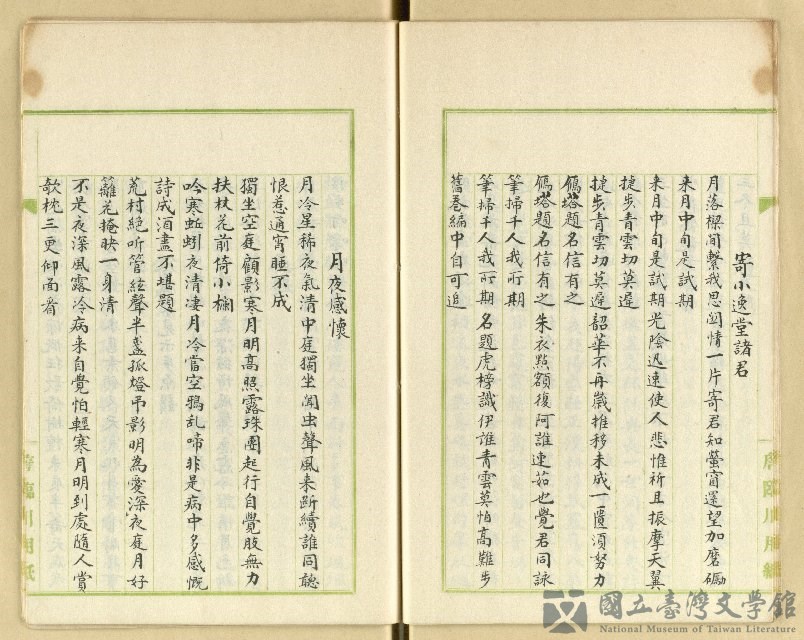 寄小逸堂諸君
月落樑間繫我思闊情一片寄君知螢窗還望加磨礪
来月中旬是試期
来月中旬是試期光陰迅速使人悲惟祈且振摩天翼
捷步青雲切莫遲
捷步青雲切莫遲韶華不再歲推移未成一匱須努力
鴈塔題名信有之
鴈塔題名信有之朱衣點額復阿誰連茹也覺君同詠
筆掃千人我所期
筆掃千人我所期名題虎榜識伊誰青雲莫怕高難步
舊卷編中自可追
月夜感懷
月冷星稀夜氣清中庭獨坐聞虫聲風来斷續誰同聽
恨惹通宵睡不成
獨坐空庭顧影寒月明高照露珠團起行自覺肢無力
扶杖花前倚小欄
吟寒蚯蚓夜清凄月冷當空鴉乱啼非是病中多感慨
詩成酒盡不堪題
荒村絕听管絃聲半盞孤燈吊影明為愛深夜庭月好
籬花掩映一身清
不是夜深風露冷病来自覺怕輕寒月明到處隨人賞
欹枕三更仰面看
國立臺灣文學館
National Museum of Taiwan Literature